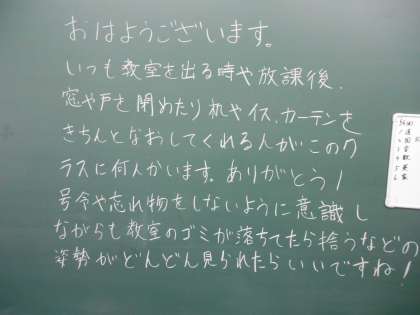 おはようございます。
いつも教室を出る時や放課後、
窓や戸を閉めたり机やイス、カーテンを
きちんとなおしてくれる人がこのク
ラスに何人かいます。ありがとう！
号令や忘れ物をしないように意識し
ながらも教室のゴミが落ちてたら拾うなどの
姿勢がどんどん見られたらいいですね！